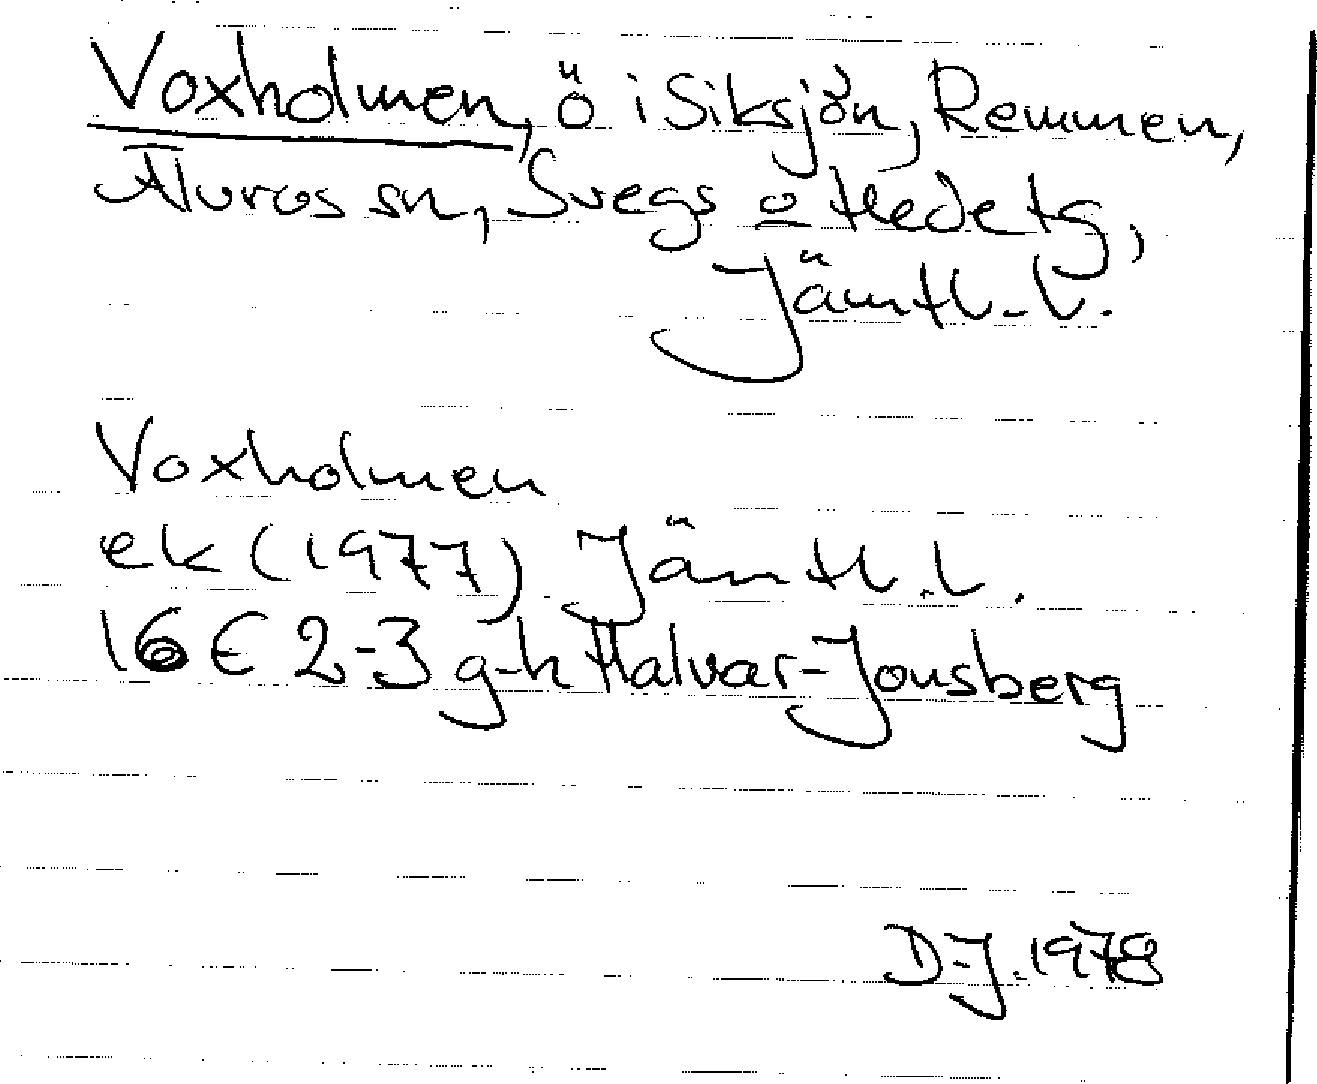 Voxholmen, ö i Siksjön, Remmen,
Älvros sn, Svegs o Hede tg,
Jämtl. l.
Voxholmen
ek (1977) Jämtl. l.
16 E 2-3 g-h Halvar-Jonsberg
D-J. 1978